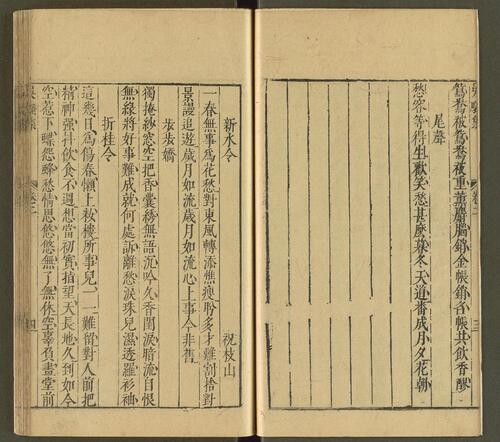 鴛鴦被鴛鴦夜重薰蘭麝銷金帳銷金帳共飲香醪
尾聲
愁容等得生歡笑愁甚麼暮冬天道番成月夕花朝
新水令
祝枝山
一春無事爲花愁對東風轉添憔瘦盼多才難割捨對
景謾追遊歲月如流歲月如流心上事今非舊
步步嬌
獨掩紗窓空把香囊綉無語沉吟久香閨淚暗流自恨
無緣將好事難成就何處訴離愁淚珠兒濕透羅衫袖
折桂令
這幾日爲傷春懶上粧樓所事兒一一難留對人前把
精神強抖飲食不週想當初實指望天長地久到如今
空惹下蝶怨蜂愁情思悠悠無了無休空辜負畫堂前